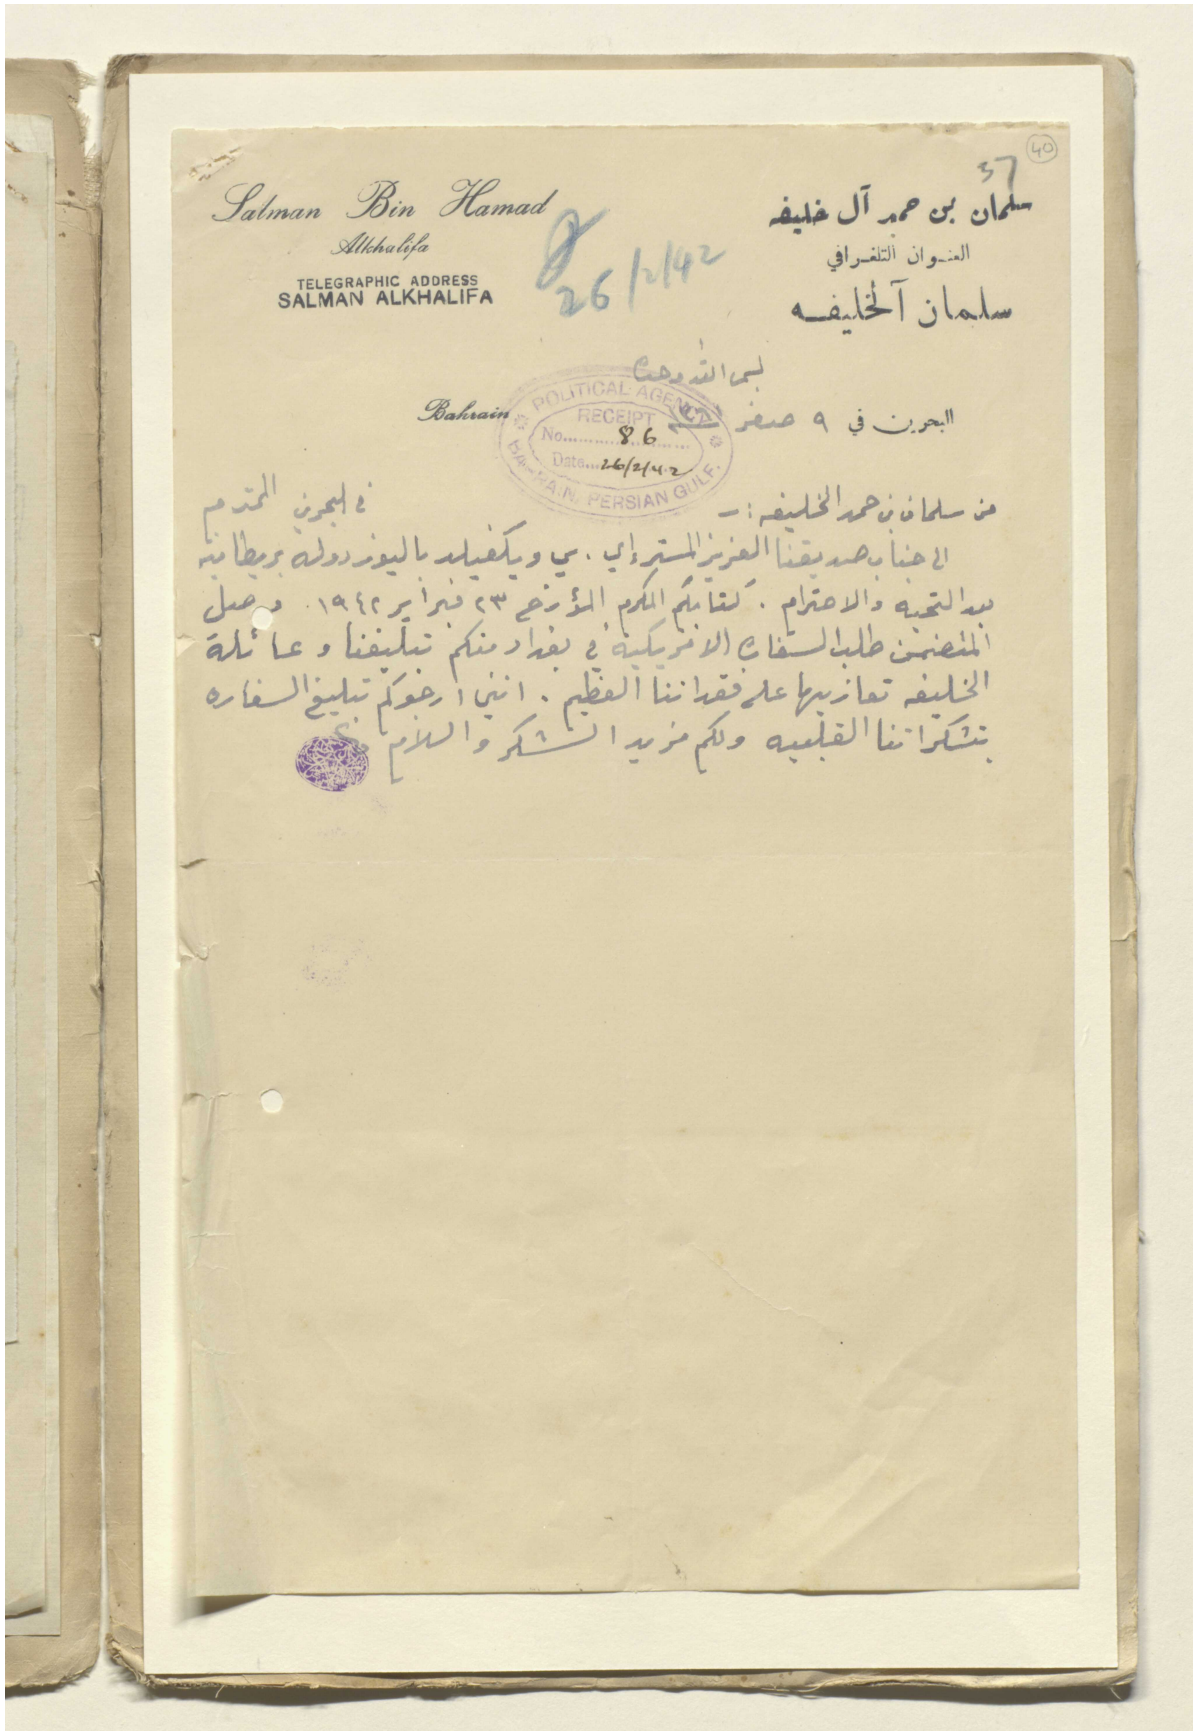 40
37
Salman Bin Hamad
Alkhalifa
TELEGRAPHIC ADDRESS
SALMAN ALKHALIFA
سلمان بن حمد آل خليفه
العنوان التلغرافي
سلمان آلخليفه
26/2/42
بسم الله وحده
Bahrain
البحرين في ٩ صفر
POLITICAL AGENCY
RECEIPT
No. 86
Date 26/2/42
BAHRAIN, PERSIAN GULF.
من سلمان بن حمد الخليفه :–
الى جناب صديقنا العزيز المستر إي . بي ويكفيلد باليوز دولة بريطانيه في البحرين المحترم
بعد التحيه والاحترام . كتابكم المكرم المؤرخ ٢٣ فبراير ١٩٤٢ وصل
المتضمن طلب السفاره الامريكية في بغداد منكم تبليغنا وعائلة
الخليفه تعازيها على فقداننا العظيم . انني ارجوكم تبليغ السفاره
بتشكراتنا القلبيه ولكم مزيد الشكر والسلام